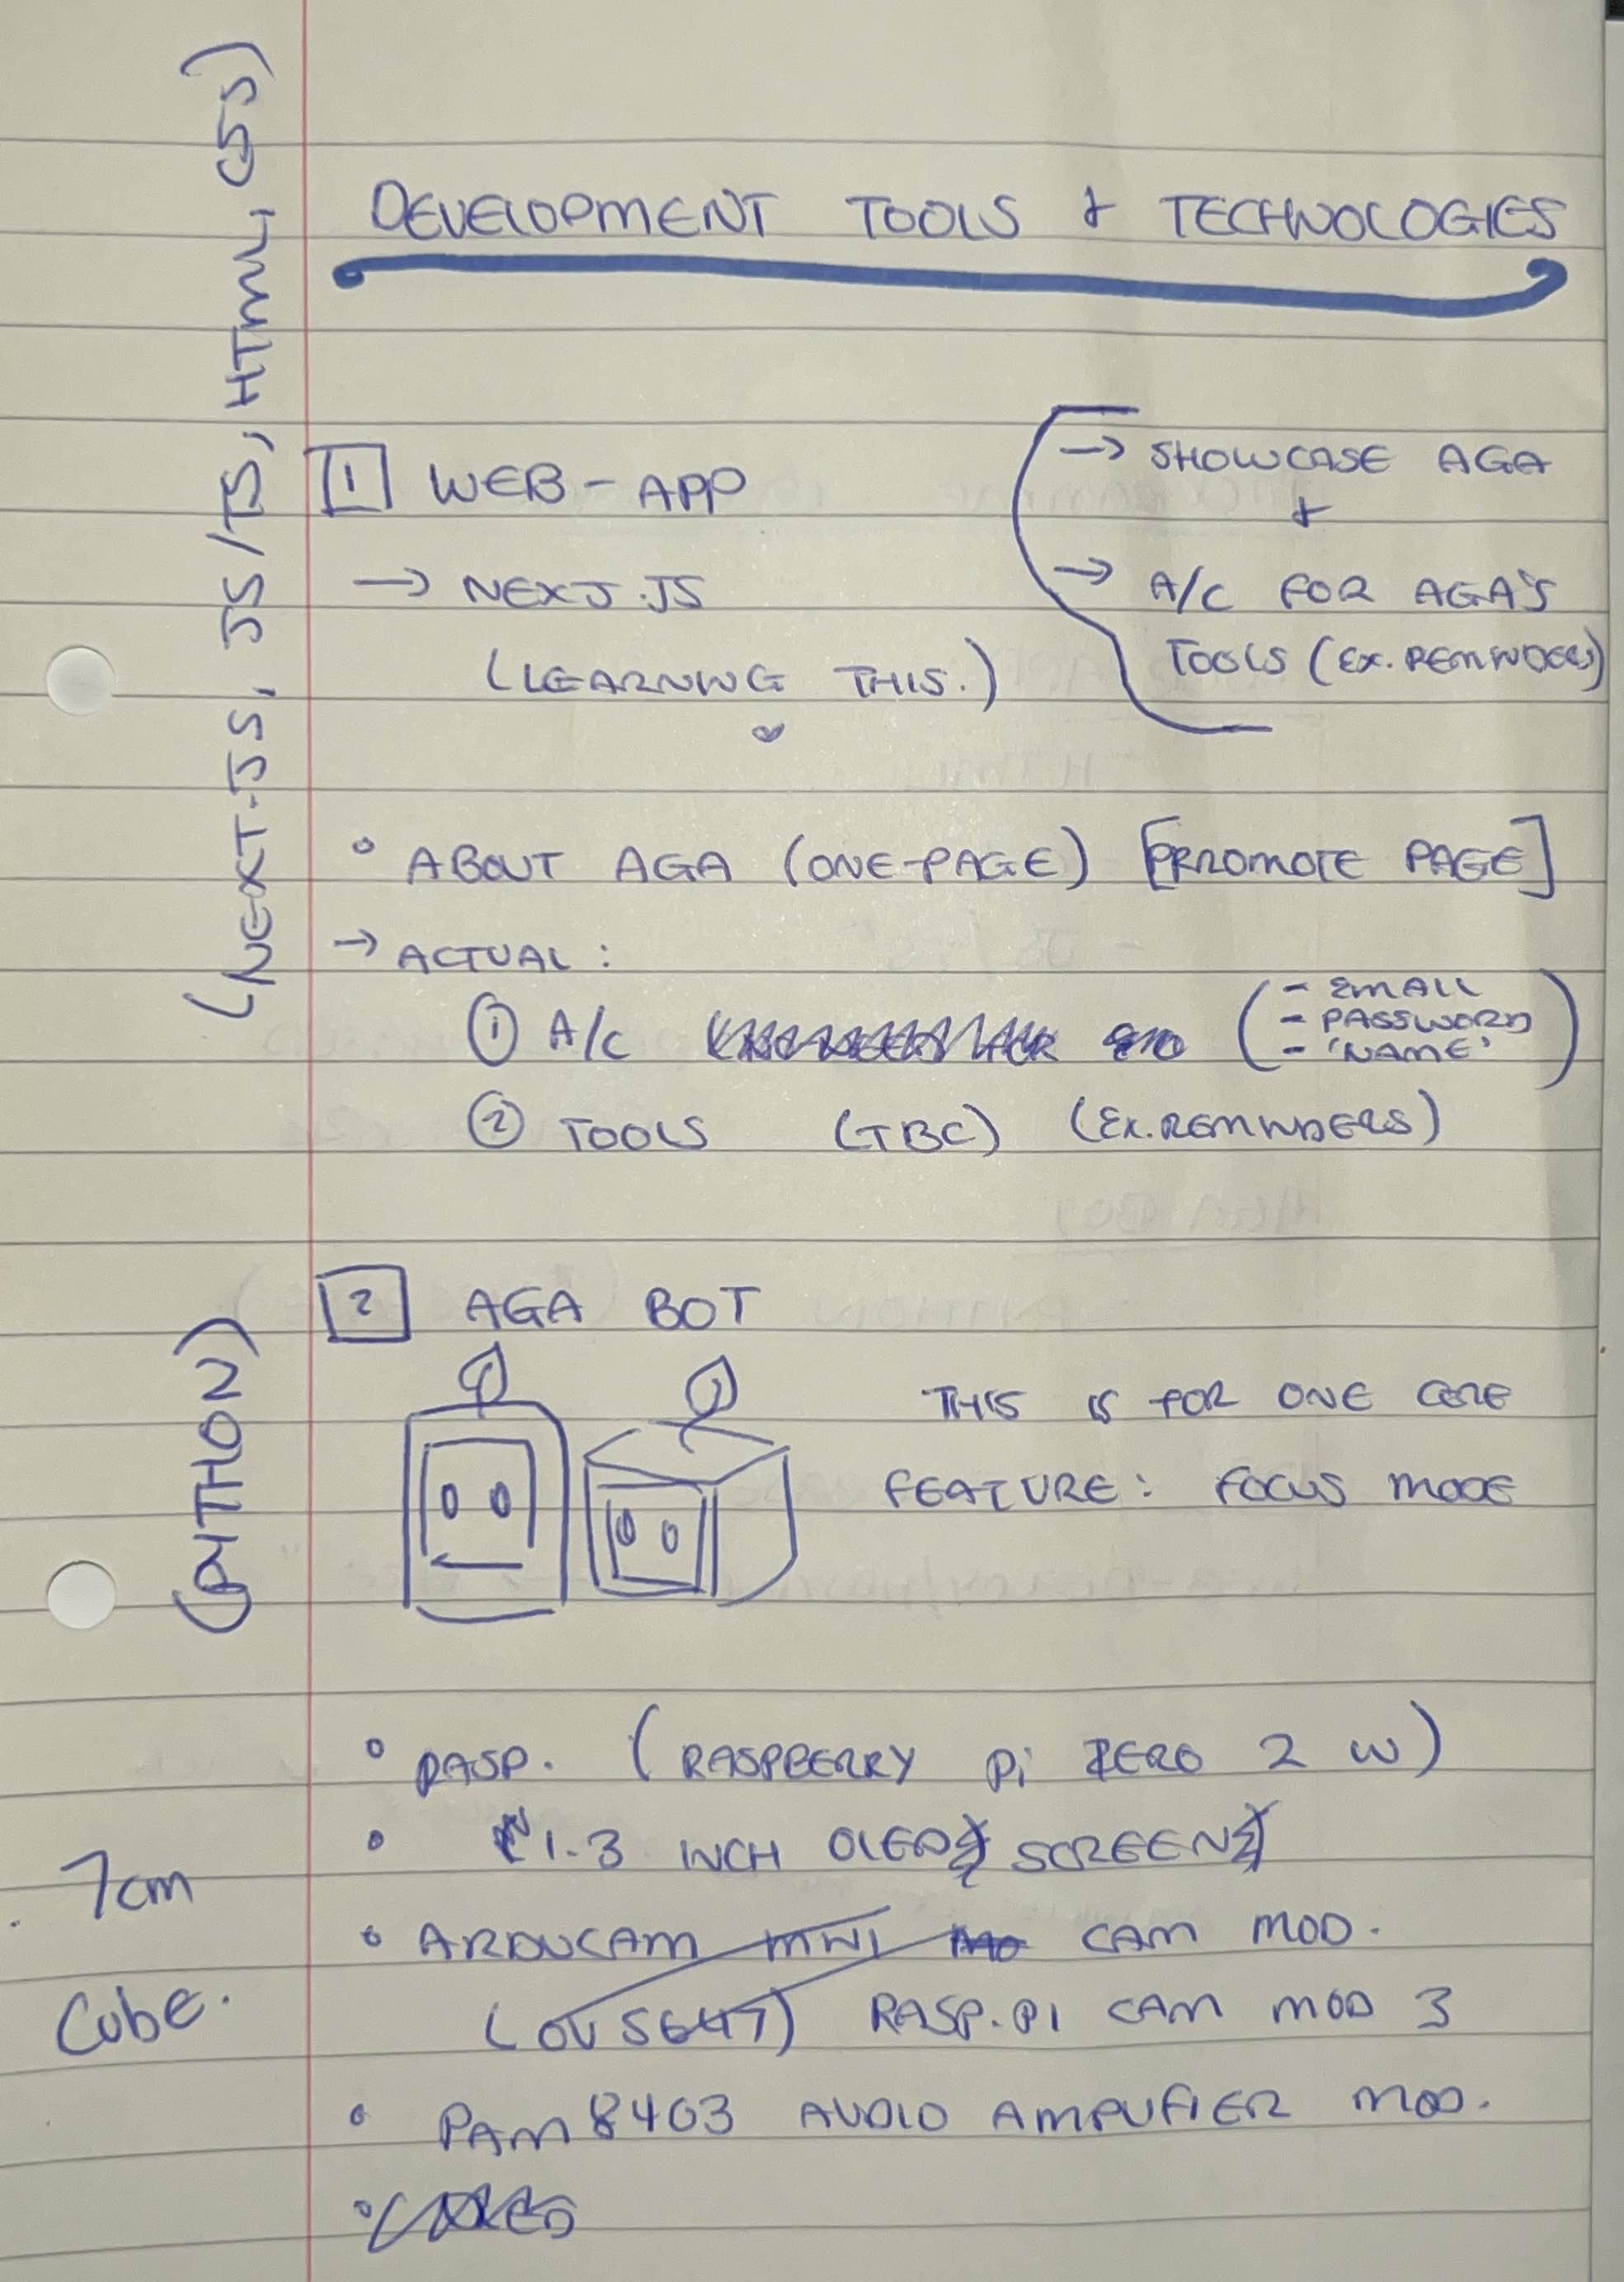 (NEXT.JS, JS/TS, HTML, CSS)
DEVELOPMENT TOOLS + TECHNOLOGIES
1 WEB-APP
→ NEXT.JS
(LEARNING THIS.)
→ SHOWCASE AGA
+
→ A/C FOR AGA'S
TOOLS (EX. REMINDERS)
• ABOUT AGA (ONE-PAGE) [PROMOTE PAGE]
→ ACTUAL:
① A/C
(- EMAIL
- PASSWORD
- 'NAME')
② TOOLS (TBC) (EX. REMINDERS)
(PYTHON)
2 AGA BOT
THIS IS FOR ONE CORE
FEATURE: FOCUS MODE
• RASP. (RASPBERRY Pi ZERO 2 W)
• 1.3 INCH OLED SCREEN
7cm
Cube.
• ARDUCAM MINI CAM MOD.
(OV5647) RASP.PI CAM MOD 3
• PAM8403 AUDIO AMPLIFIER MOD.